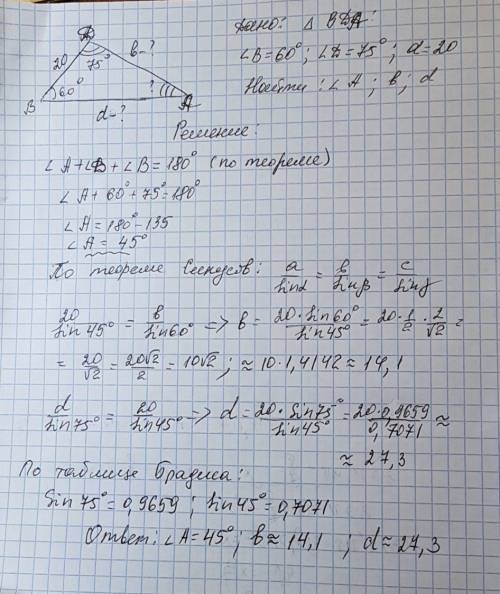 Дано: Δ BDA:
∠B=60°; ∠D=75°; d=20
Найти: ∠A; b; d
D
20
75°
b-?
B
60°
?
A
d-?
Решение:
∠A+∠D+∠B=180° (по теореме)
∠A+60°+75°=180°
∠A=180°-135
∠A=45°
По теореме синусов: a/sinα = b/sinβ = c/sinγ
20/sin45° = b/sin60° => b = 20·sin60°/sin45° = 20·1/2·2/√2 =
= 20/√2 = 20√2/2 = 10√2; ≈ 10·1,4142 ≈ 14,1
d/sin75° = 20/sin45° => d = 20·sin75°/sin45° = 20·0,9659/0,7071 ≈
≈ 27,3
По таблице Брадиса:
sin75°=0,9659; sin45°=0,7071
Ответ: ∠A=45°; b≈14,1; d≈27,3